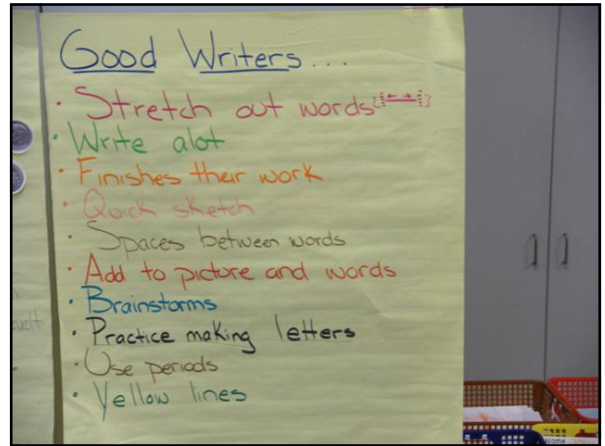 Good Writers...
• Stretch out words
• Write alot
• Finishes their work
• Quick sketch
• Spaces between words
• Add to picture and words
• Brainstorms
• Practice making letters
• Use periods
• Yellow lines